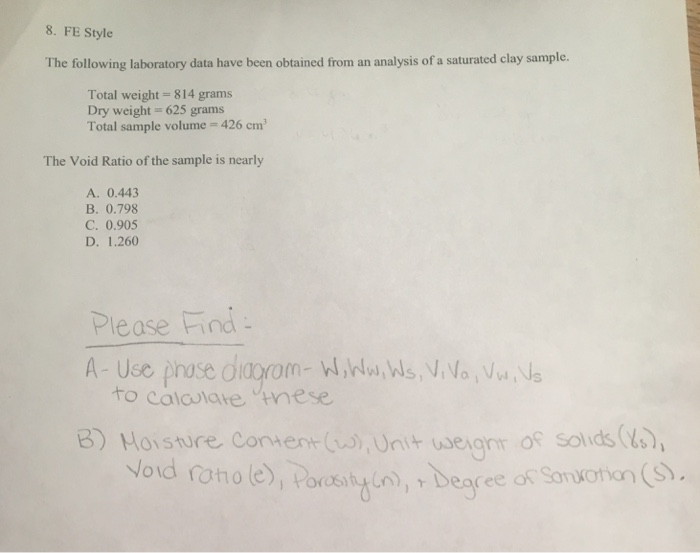 8. FE Style
The following laboratory data have been obtained from an analysis of a saturated clay sample.
Total weight = 814 grams
Dry weight = 625 grams
Total sample volume = 426 cm³
The Void Ratio of the sample is nearly
A. 0.443
B. 0.798
C. 0.905
D. 1.260
Please Find:
A- Use phase diagram- W, Ww, Ws, V, Va, Vw, Vs
to calculate these
B) Moisture Content (w), Unit weight of solids (γs),
Void ratio (e), Porosity (n), + Degree of Saturation (S).